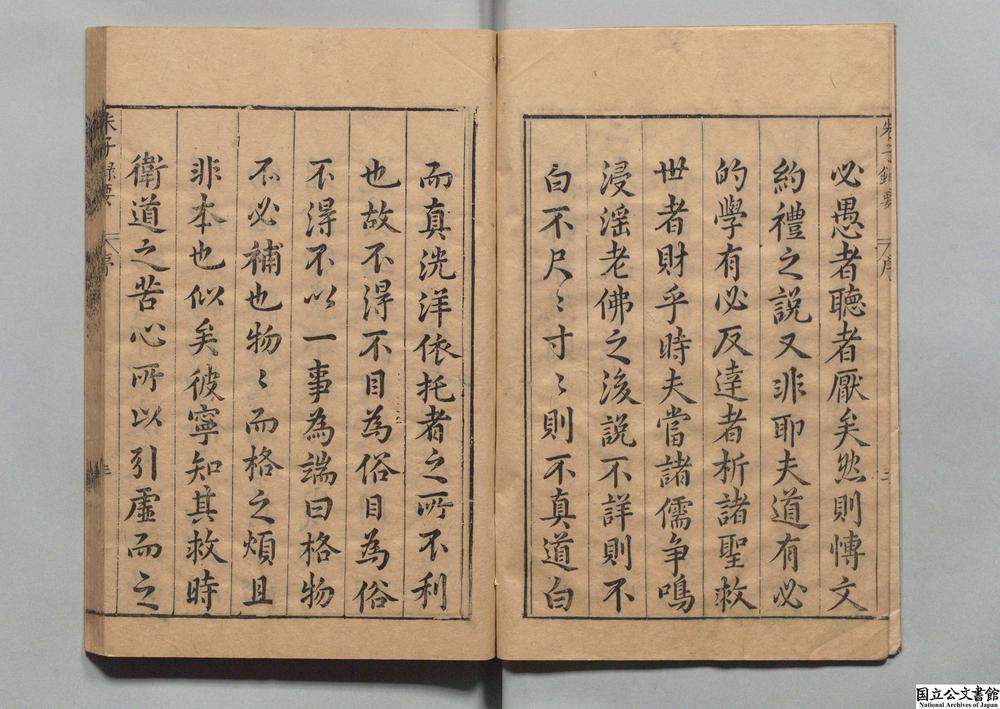 必愚者聽者厭矣然則愽文
約禮之説又非耶夫道有必
的學有必反達者析諸聖救
世者財乎時夫當諸儒争鳴
浸滛老佛之後説不詳則不
白不尺〻寸〻則不真道白
而真洸洋依托者之所不利
也故不得不目為俗目為俗
不得不以一事為端曰格物
不必補也物〻而格之煩且
非本也似矣彼寧知其救時
衛道之苦心所以引虛而之
朱子録要
序
国立公文書館
National Archives of Japan